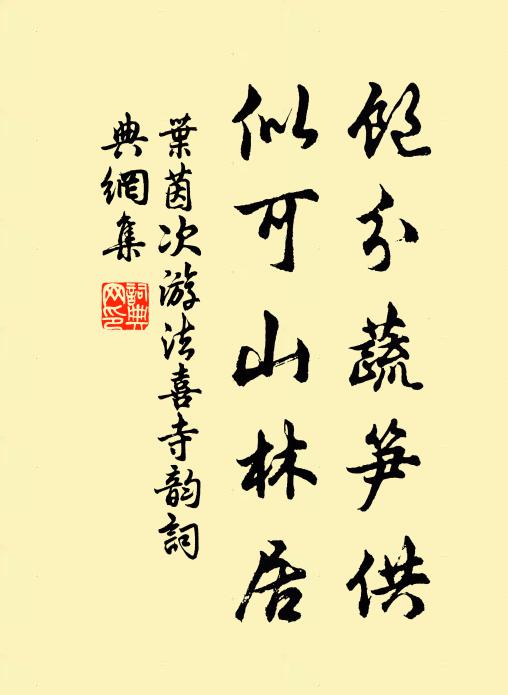 飽分蔬笋供
似可山林居
葉茵次游法喜寺韵詞
典網集
詞典
网印